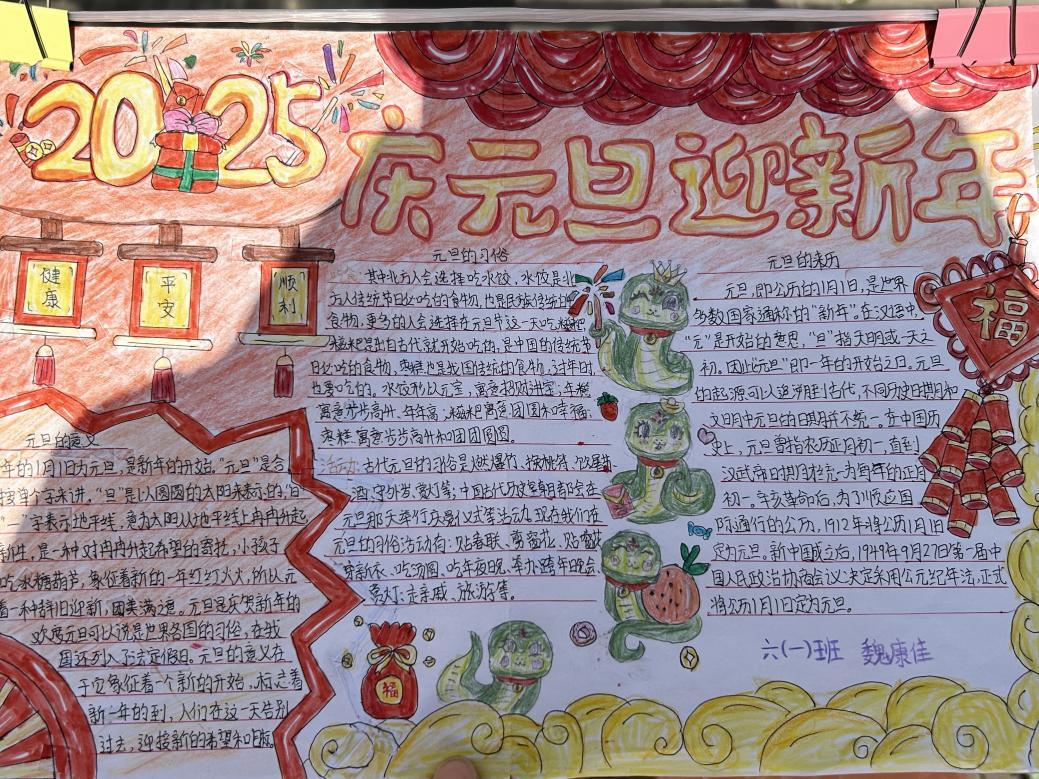 2025
庆元旦迎新年
健康
平安
顺利
元旦的意义
年的1月1日为元旦,是新年的开始。"元旦"是合
按单个字来讲,"旦"是以圆圆的太阳来表示的,"日"
一字表示地平线,意为太阳从地平线上冉冉升起
是一种对冉冉升起希望的寄托,小孩子
吃冰糖葫芦,象征着新的一年红红火火,所以元
着一种辞旧迎新,团美满之意。元旦是庆贺新年的
欢度元旦可以说是世界各国的习俗,在我
国还列入了法定假日。元旦的意义在
于它象征着一个新的开始,标志着
新一年的到,人们在这一天告别
过去,迎接新的希望和
元旦的习俗
其中北方人会选择吃水饺,水饺是北
方人传统节日必吃的食物,也是民族传统
食物,更多的人会选择在元旦节这一天吃糍粑
糍粑是从古代就开始吃的,是中国的传统节
日必吃的食物,枣糕也是我国传统的食物,过年时
也要吃的。水饺形似元宝,寓意招财进宝;年糕
寓意步步高升、年年高;糍粑寓意团圆和幸福;
枣糕寓意步步高升和团团圆圆。
活动:古代元旦的习俗是燃爆竹、换桃符、饮屠苏
酒、守外岁、赏灯等;中国古代历史皇朝都会在
元旦那天举行庆贺仪式等活动。现在我们在
元旦的习俗活动有:贴春联、贴窗花
穿新衣、吃汤圆、吃年夜饭、举办跨年晚会、
赏灯、走亲戚、旅游等。
元旦的来历
元旦,即公历的1月1日,是世界
多数国家通称的"新年"。在汉语中,
"元"是开始的意思,"旦"指天明或一天之
初。因此"元旦"即一年的开始之日。元旦
的起源可以追溯到古代,不同历史日期和
文明中元旦的日期并不统一。在中国历
史上,元旦曾指农历正月初一,直到
汉武帝日期才统一为每年的正月
初一。辛亥革命后,为了顺应国
际通行的公历,1912年将公历1月1日
定为元旦。新中国成立后,1949年9月27日第一届中
国人民政治协商会议决定采用公元纪年法,正式
将公历1月1日定为元旦。
福
福
六(一)班 魏康佳